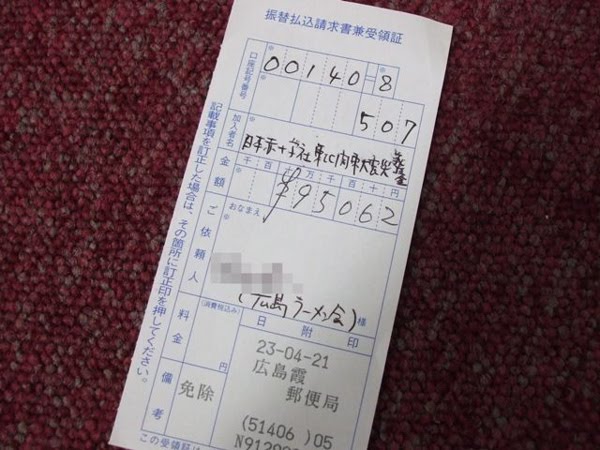 振替払込請求書兼受領証
口座記号番号
00140-8
507
加入者名
日本赤十字社東北関東大震災義援金
金額
千百十万千百十円
¥95062
ご依頼人
おなまえ
(広島ラーメン会)様
料金
(消費税込み)
円
日附印
23-04-21
広島霞
郵便局
備考
免除
(51406 )05
記載事項を訂正した場合は、その箇所に訂正印を押してください。